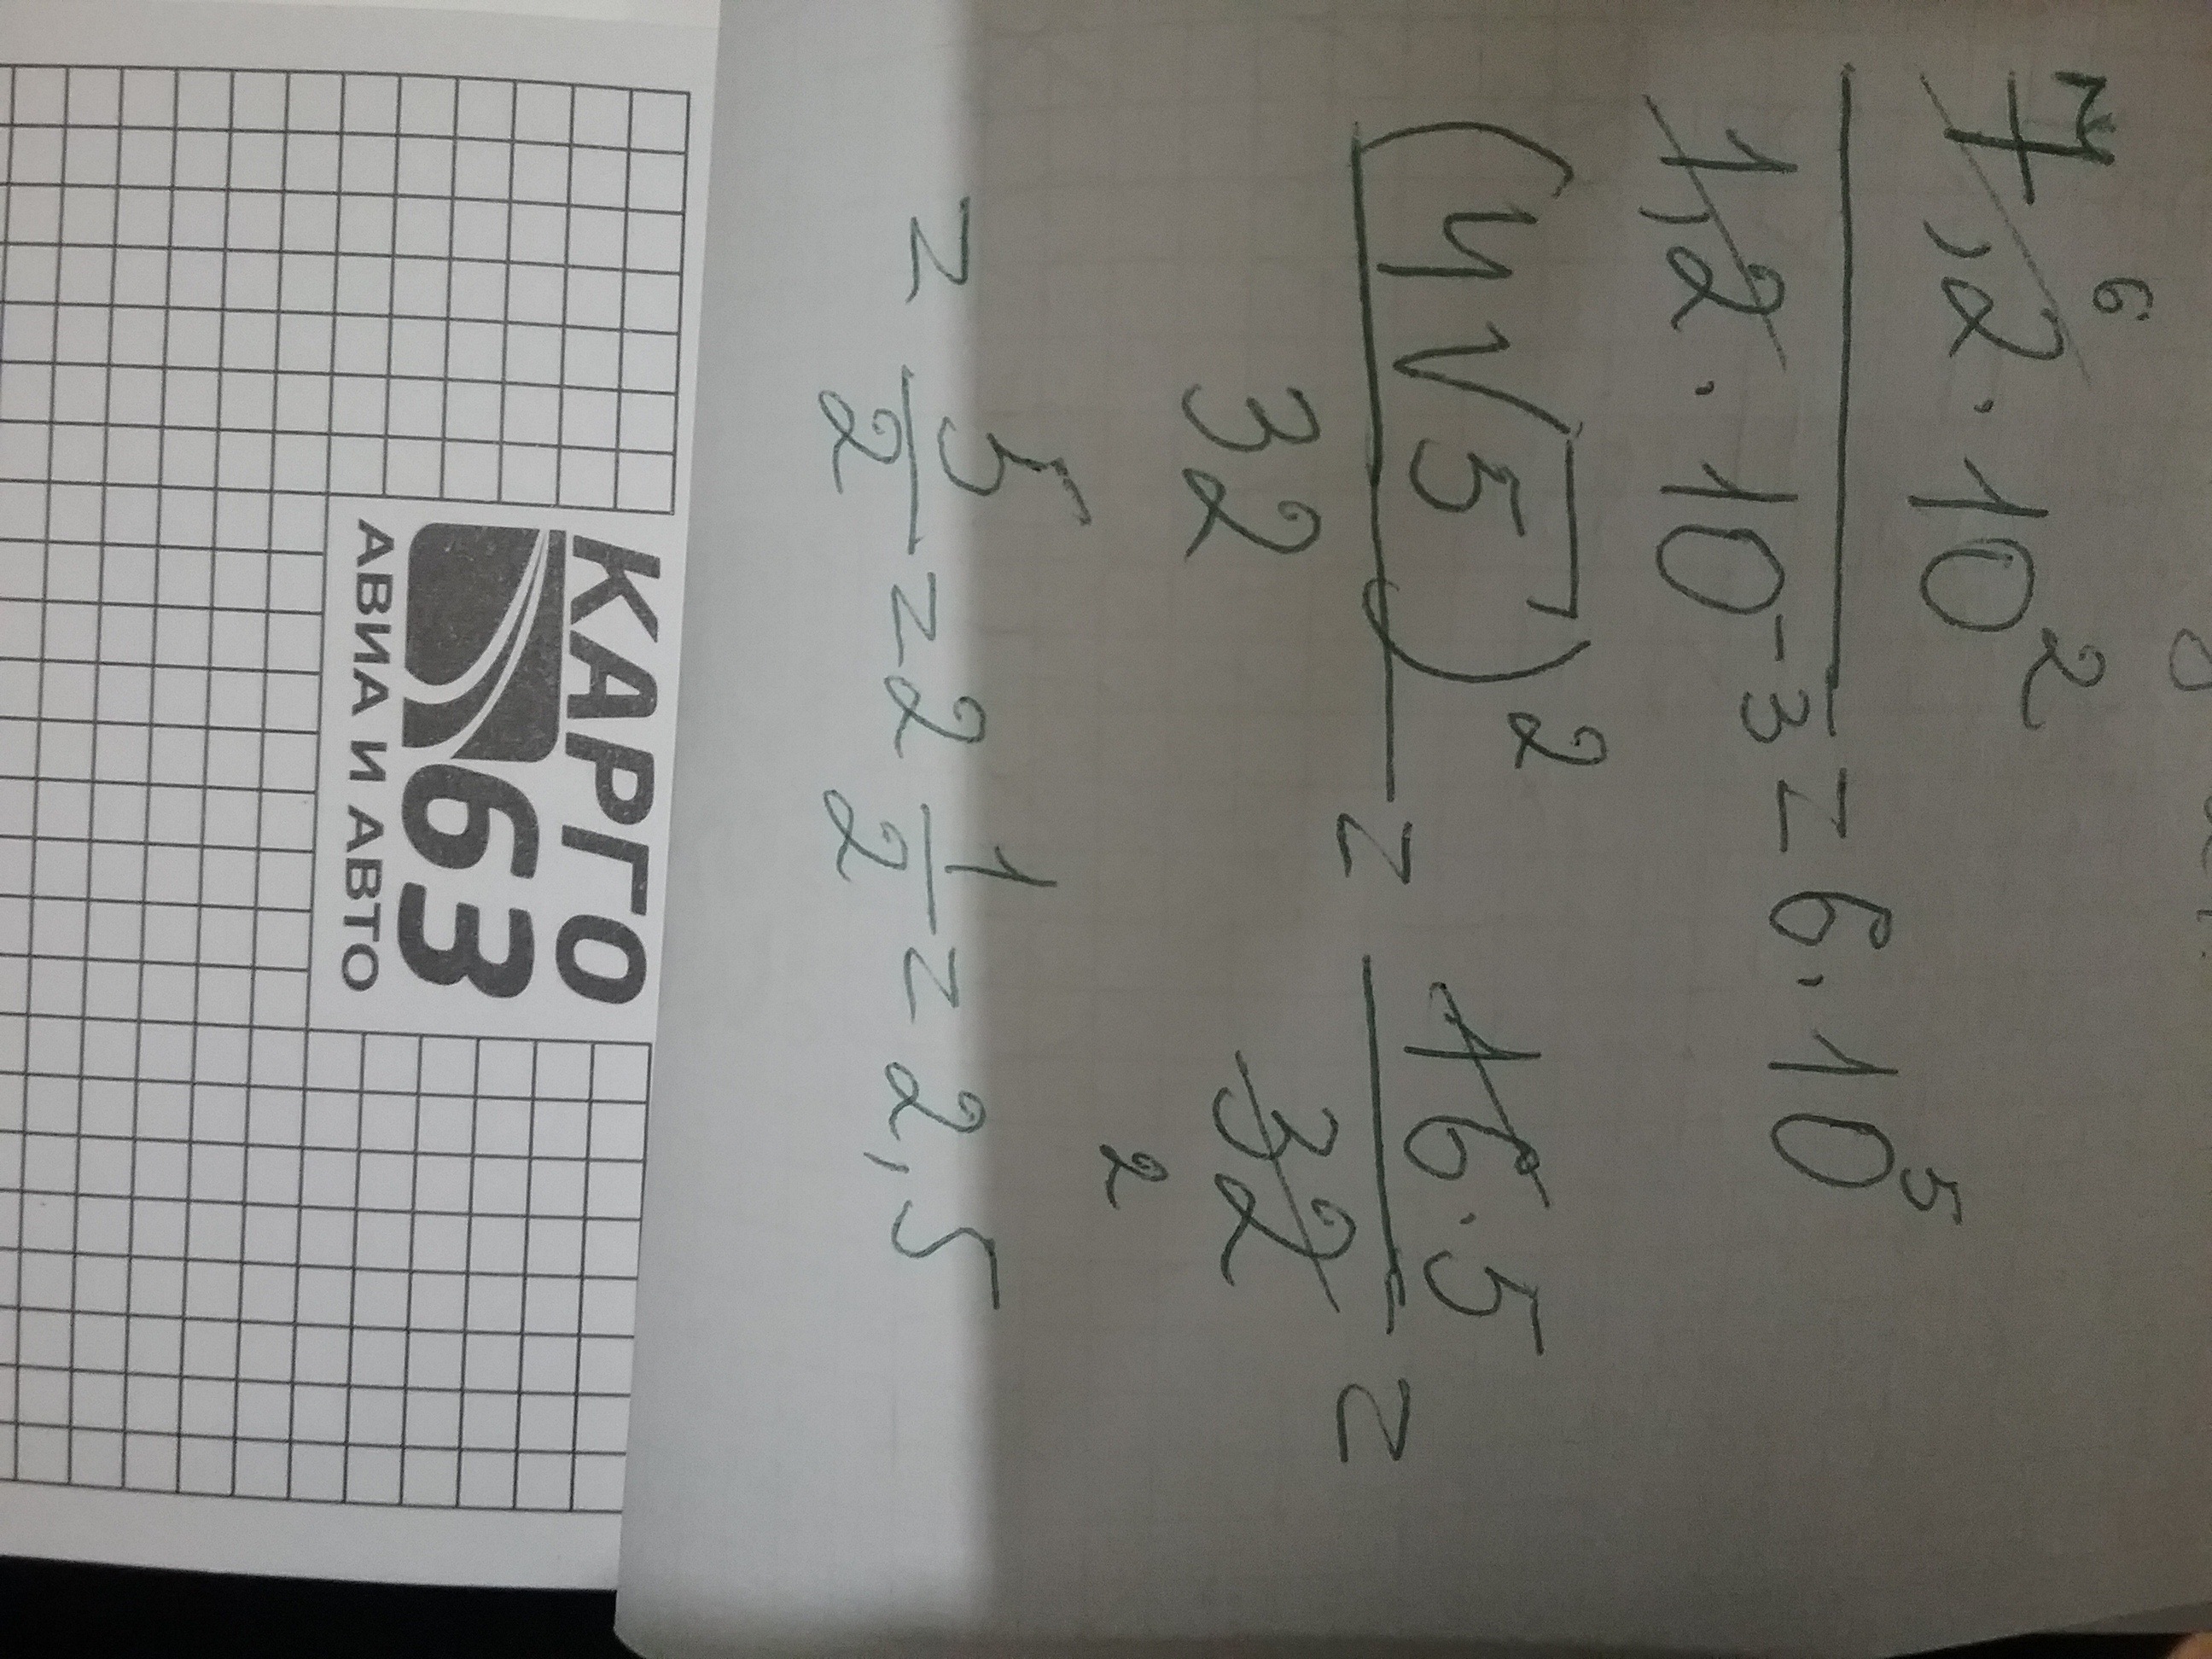 6
7,2 · 10²
1,2 · 10⁻³ = 6 · 10⁵
(4√5)²
32
=
16 · 5
32
=
2
= 5/2 = 2 1/2 = 2,5
КАРГО
63
АВИА И АВТО